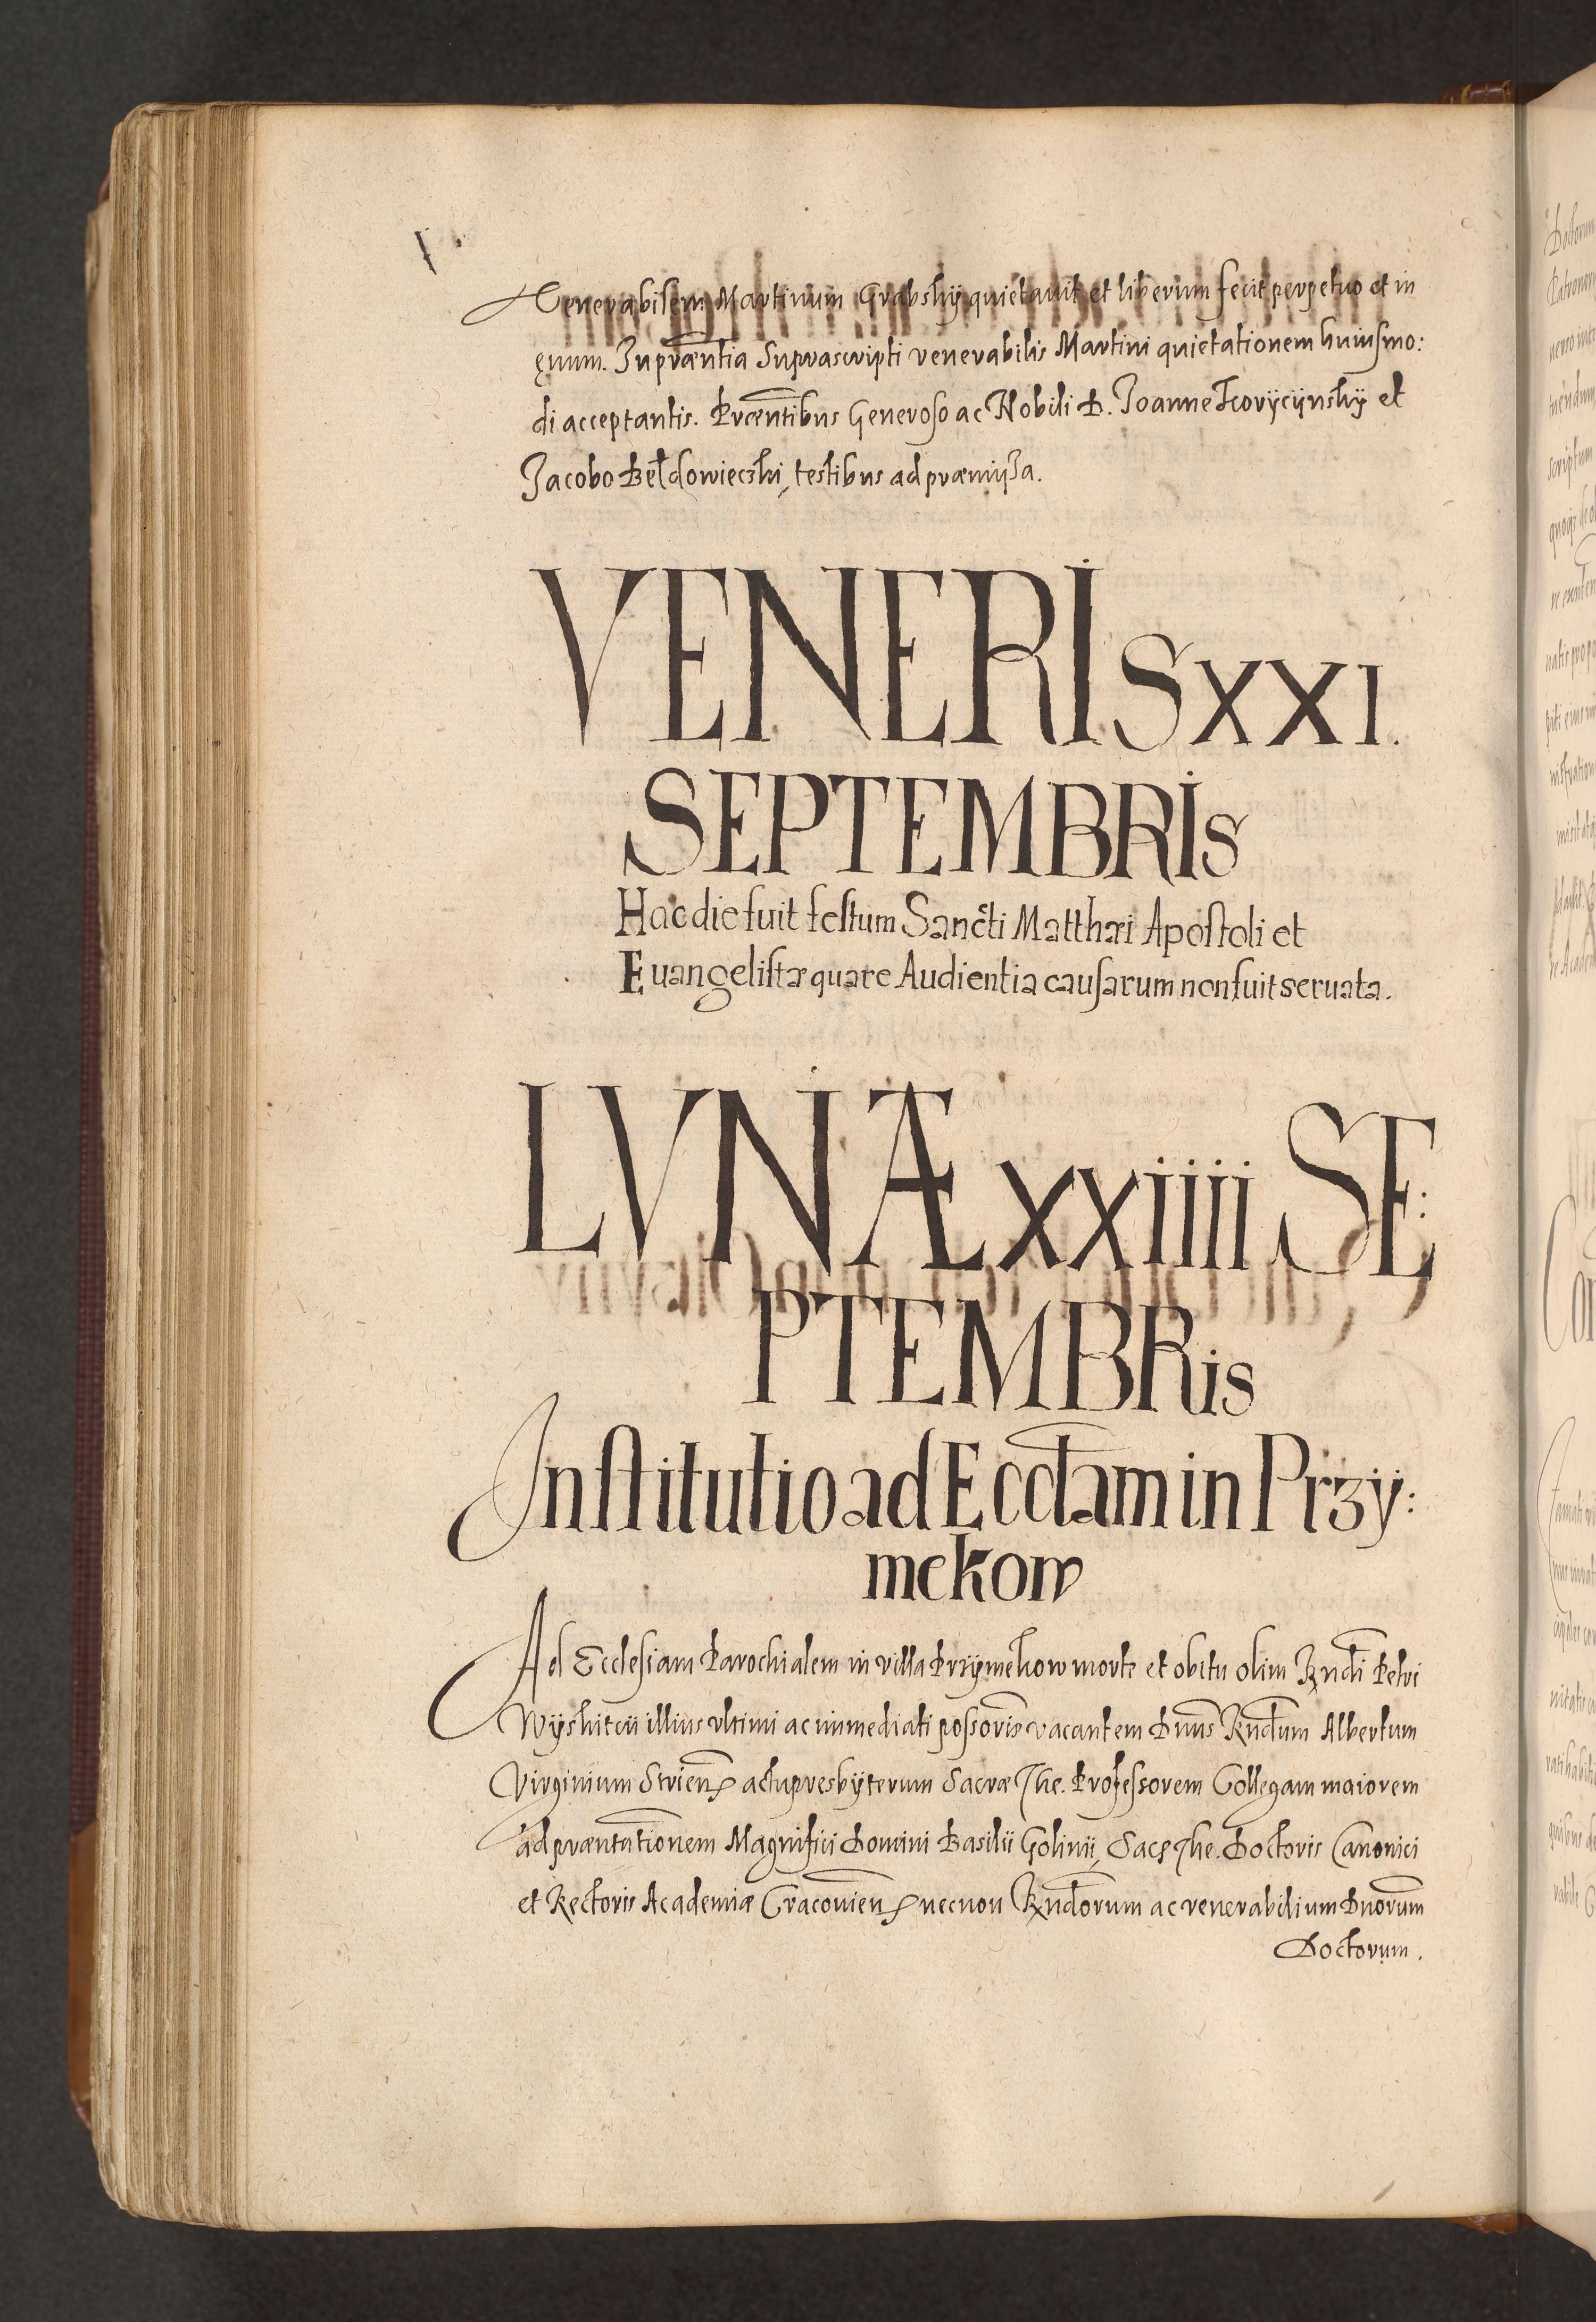 Venerabilem Martinum Grabsky quietauit et liberum fecit perpetuo et in
ęuum. In præntia suprascripti venerabilis Martini quietationem huiusmo:
di acceptantis. Præntibus Generoso ac Nobili D. Joanne et
Jacobo Bełdowieczki, testibus ad præmissa.
VENERIS XXI.
SEPTEMBRIS
Hac die fuit festum Sancti Matthæi Apostoli et
Euangelistæ quare Audientia causarum non fuit seruata.
LVNÆ XXIIII SE:
PTEMBRis
Institutio ad Ecclam in Przy:
mekow
Ad Ecclesiam Parochialem in villa Przymekow morte et obitu olim Rndi Petri
illius vltimi ac immediati possoris vacantem Dnus Rndum Albertum
Virginium actu presbyterum Sacræ The. Professorem Collegam maiorem
ad præntationem Magnifici Domini Basilii Golinii, Sacę The. Doctoris Canonici
et Rectoris Academiæ Cracouien necnon Rndorum ac venerabilium Dnorum
Doctorum.